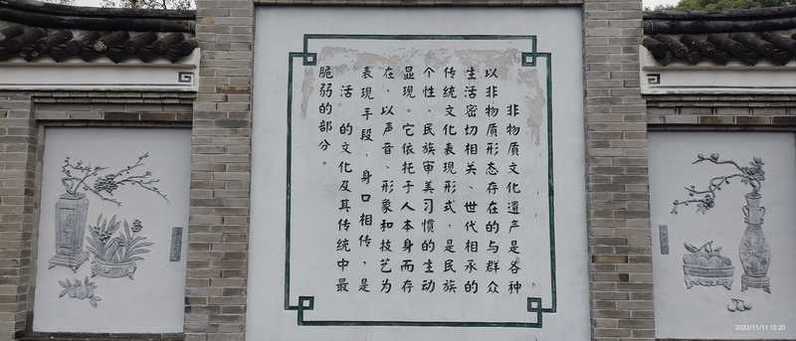 非物质文化遺产是各种
以非物质形态存在的与群众
生活密切相关、世代相承的
传统文化表现形式，是民族
个性、民族审美习惯的生动
显现。它依托于人本身而存
在，以声音、形象和技艺为
表现手段，身口相传，是
活 的文化及其传统中最
脆弱的部分。